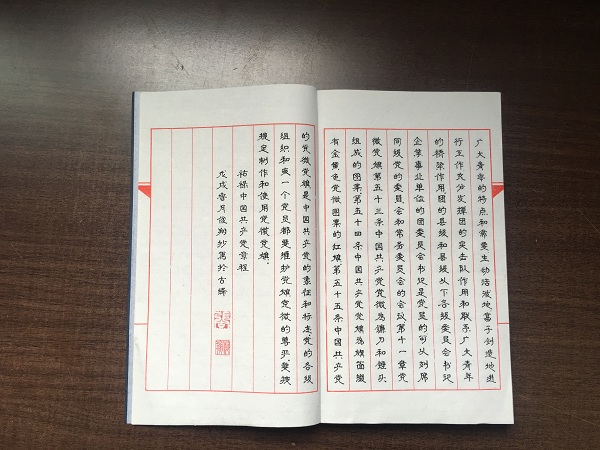 广大青年的特点和需要生动活泼地,富于创造地进
行工作充分发挥团的突击队作用和联系广大青年
的桥梁作用团的县级和县级以下各级委员会书记
企业事业单位的团委员会书记是党员的可以列席
同级党的委员会和常务委员会的会议,第十一章党
徽党旗第五十三条中国共产党党徽为镰刀和锤头
组成的图案第五十四条中国共产党党旗为旗面缀
有金黄色党徽图案的红旗,第五十五条中国共产党
的党徽党旗是中国共产党的象征和标志,党的各级
组织和每一个党员都要维护党旗党徽的尊严,要按
规定制作和使用党徽党旗.
中国共产党章程
戊戌 月俊翔抄写於古绛